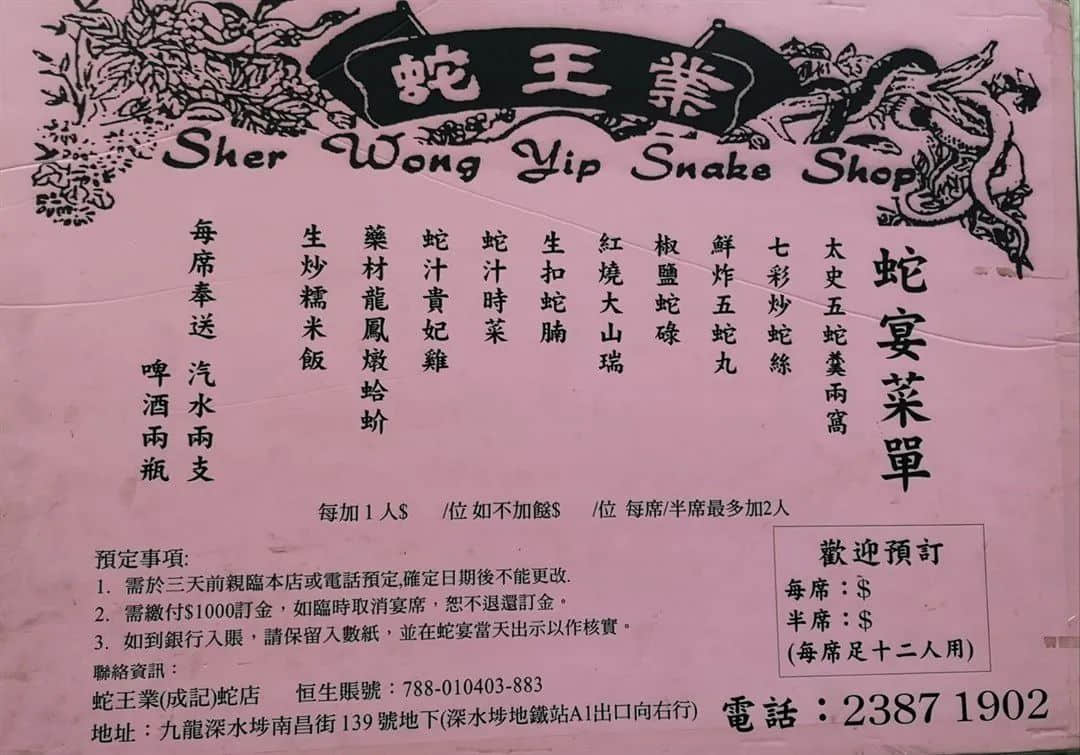 蛇王業
Sher Wong Yip Snake Shop
蛇宴菜單
太史五蛇羹兩窩
七彩炒蛇絲
鮮炸五蛇丸
椒鹽蛇碌
紅燒大山瑞
生扣蛇腩
蛇汁時菜
蛇汁貴妃雞
藥材龍鳳燉蛤蚧
生炒糯米飯
每席奉送 汽水兩支
啤酒兩瓶
每加1人$ /位 如不加餸$ /位 每席/半席最多加2人
預定事項:
1. 需於三天前親臨本店或電話預定,確定日期後不能更改.
2. 需繳付$1000訂金，如臨時取消宴席，恕不退還訂金。
3. 如到銀行入賬，請保留入數紙，並在蛇宴當天出示以作核實。
歡迎預訂
每席：$
半席：$
(每席足十二人用)
聯絡資訊：
蛇王業(成記)蛇店 恒生賬號：788-010403-883
地址：九龍深水埗南昌街139號地下(深水埗地鐵站A1出口向右行)
電話：2387 1902